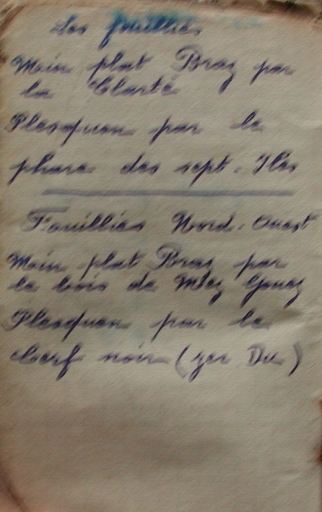 Les fouillies
Mein plat Braz par
la Clarté
Plesquen par le
phare des sept. Iles
Fouillies Nord-Ouest
Mein plat Braz par
le bois de Mlez Gouez
Plesquen par le
cerf noir (yar Du)